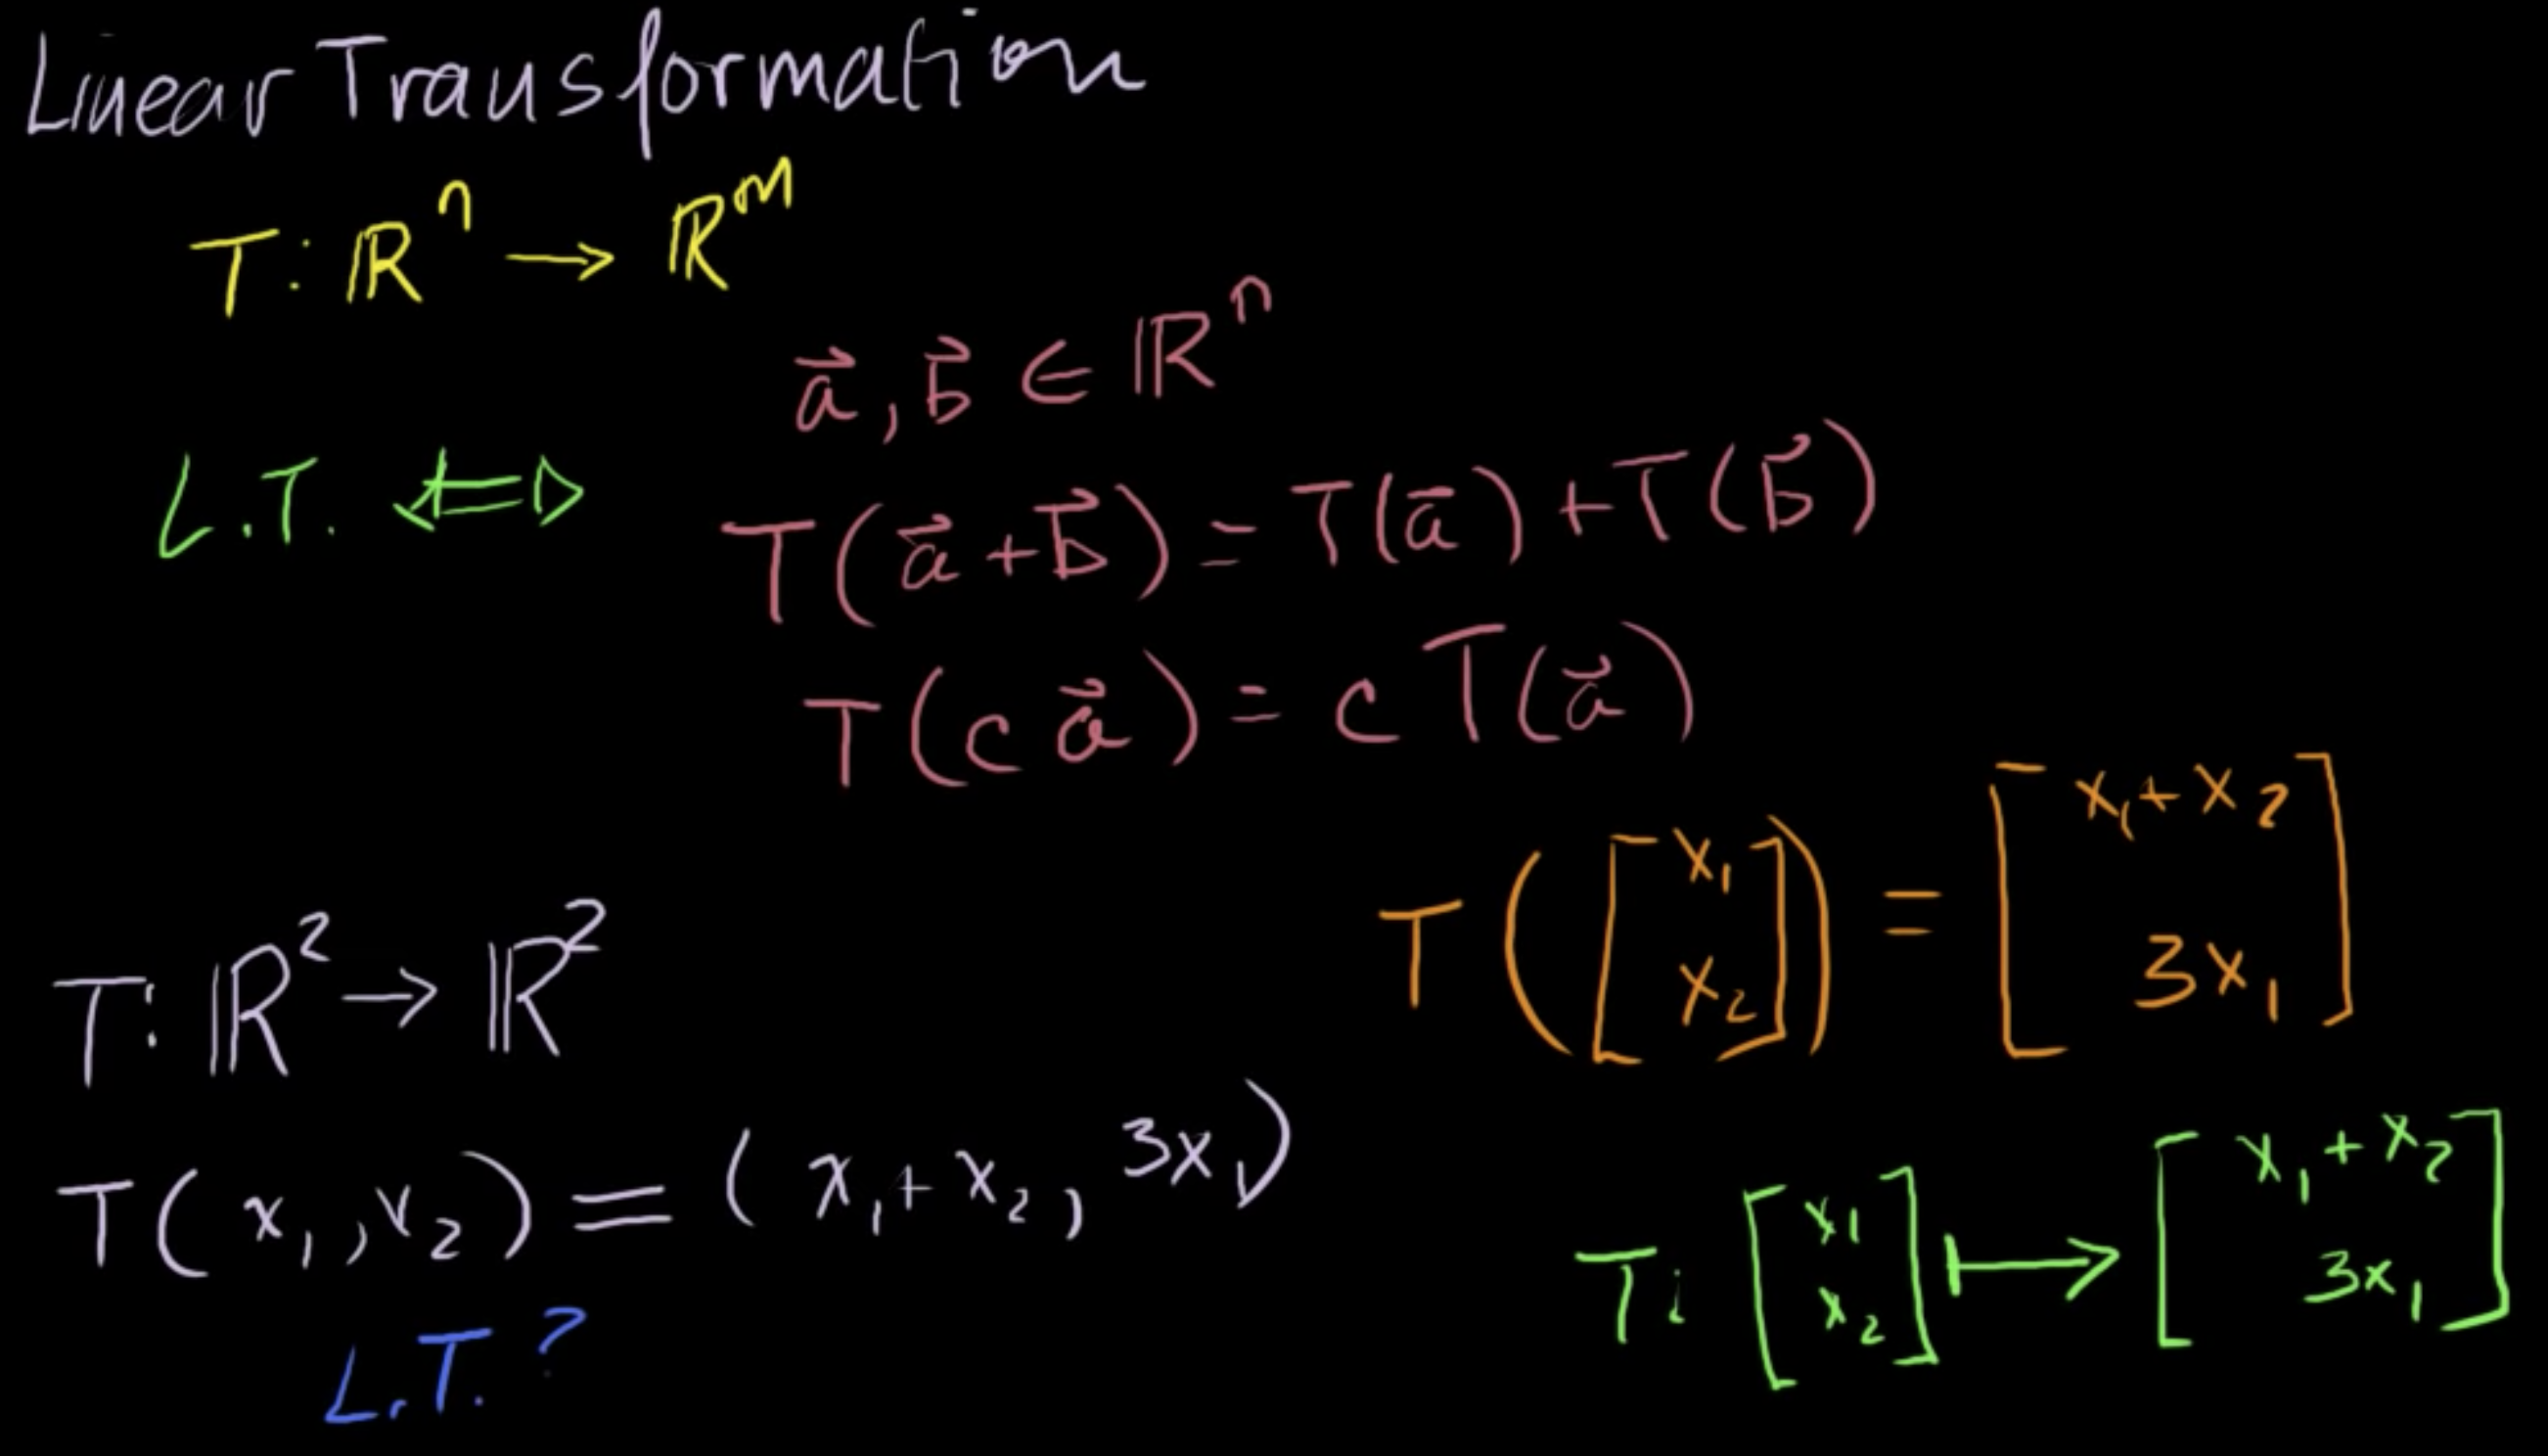 Linear Transformation
T: ℝⁿ → ℝᵐ
a⃗, b⃗ ∈ ℝⁿ
L.T. ⇔ T(a⃗ + b⃗) = T(a⃗) + T(b⃗)
T(c a⃗) = c T(a⃗)
T([x₁ x₂]) = [x₁ + x₂ 3x₁]
T: ℝ² → ℝ²
T(x₁, x₂) = (x₁ + x₂, 3x₁)
T: [x₁ x₂] ↦ [x₁ + x₂ 3x₁]
L.T.?